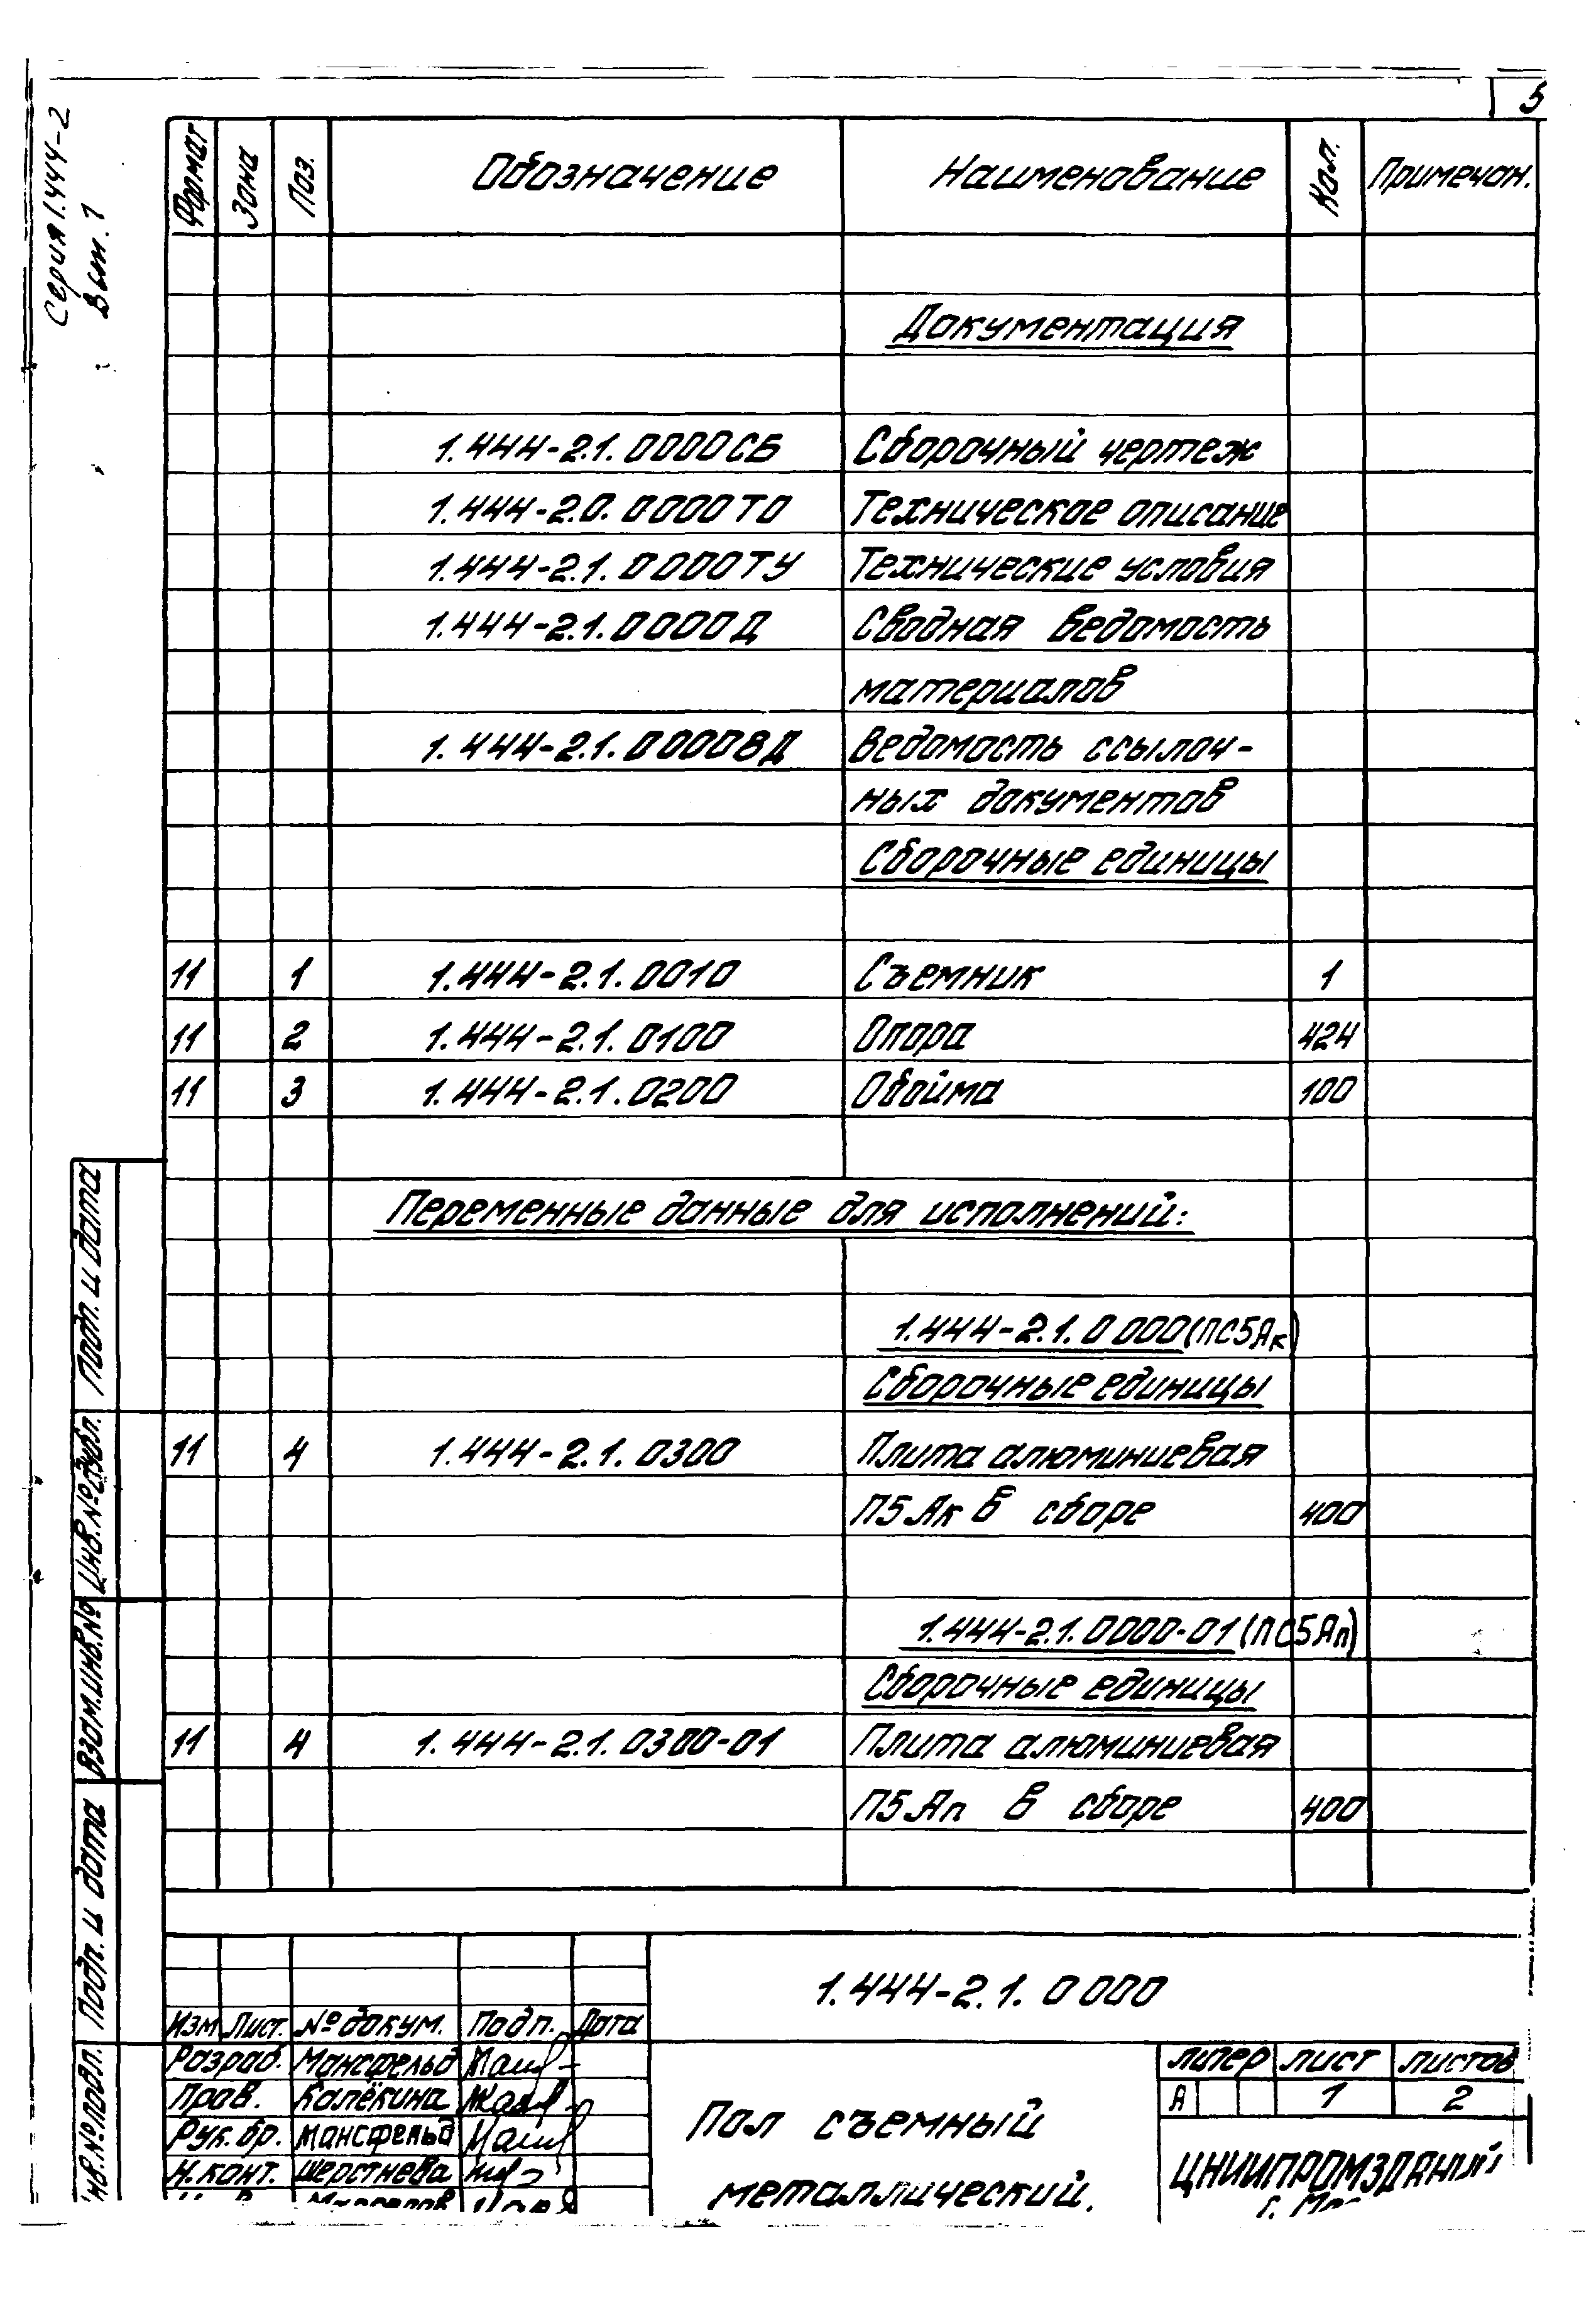 5
Серия 1.444-2
Вып. 1
Формат Зона Поз. Обозначение Наименование Кол. Примечан.
Документация
1.444-2.1.0000СБ Сборочный чертеж
1.444-2.0.0000ТО Техническое описание
1.444-2.1.0000ТУ Технические условия
1.444-2.1.0000Д Сводная ведомость
материалов
1.444-2.1.0000ВД Ведомость ссылоч-
ных документов
Сборочные единицы
11 1 1.444-2.1.0010 Съемник 1
11 2 1.444-2.1.0100 Опора 424
11 3 1.444-2.1.0200 Обойма 100
Переменные данные для исполнений:
1.444-2.1.0000(ПС5Ак)
Сборочные единицы
11 4 1.444-2.1.0300 Плита алюминиевая
П5Ак в сборе 400
1.444-2.1.0000-01(ПС5Ап)
Сборочные единицы
11 4 1.444-2.1.0300-01 Плита алюминиевая
П5Ап в сборе 400
Подп. и дата
Инв.№дубл.
Взам.инв.№
Подп. и дата
Инв.№подл.
1.444-2.1.0000
Изм Лист. №докум. Подп. Дата
Разраб. Мансфельд
Пров. Калёкина
Рук. бр. Мансфельд
Н.конт. Шерстнева
Пол съемный
металлический.
литер лист листов
А 1 2
ЦНИИПРОМЗДАНИЙ
г.